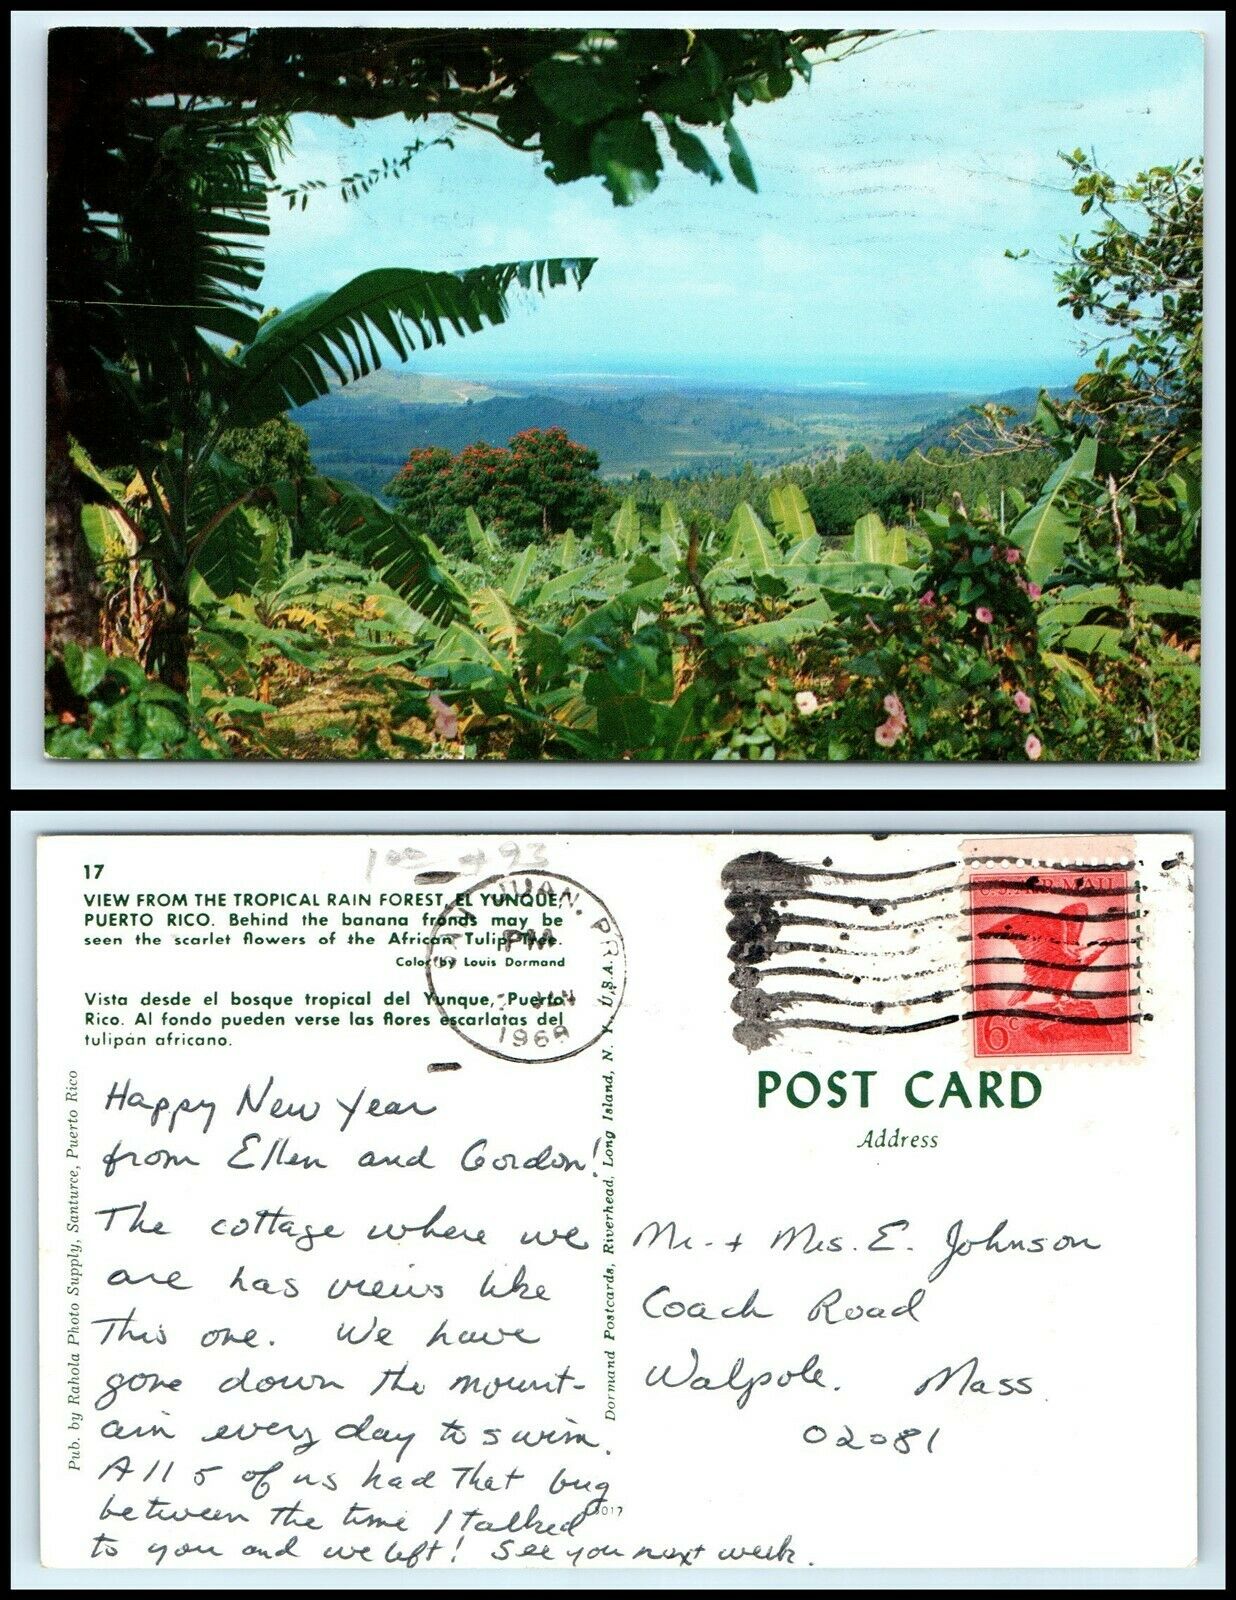 1.00
17
VIEW FROM THE TROPICAL RAIN FOREST, EL YUNQUE,
PUERTO RICO. Behind the banana fronds may be
seen the scarlet flowers of the African Tulip Tree.
Color by Louis Dormand
Vista desde el bosque tropical del Yunque, Puerto
Rico. Al fondo pueden verse las flores escarlatas del
tulipán africano.
SAN JUAN, P.R.
PM
JAN
1968
6c
POST CARD
Address
Happy New Year
from Ellen and Gordon!
The cottage where we
are has views like
this one. We have
gone down the mount-
ain every day to swim.
All 5 of us had that bug
between the time I talked
to you and we left! See you next week.
Mr. + Mrs. E. Johnson
Coach Road
Walpole. Mass.
02081
Pub. by Rahola Photo Supply, Santurce, Puerto Rico
Dormand Postcards, Riverhead, Long Island, N. Y., U.S.A.